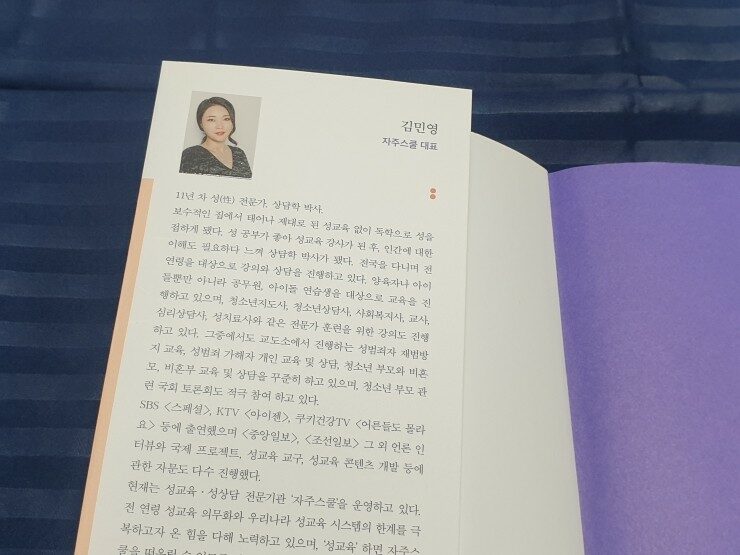 김민영
자주스쿨 대표
11년 차 성(性) 전문가, 상담학 박사.
보수적인 집에서 태어나 제대로 된 성교육 없이 독학으로 성을
접하게 됐다. 성 공부가 좋아 성교육 강사가 된 후, 인간에 대한
이해도 필요하다 느껴 상담학 박사가 됐다. 전국을 다니며 전
연령을 대상으로 강의와 상담을 진행하고 있다. 양육자나 아이
들뿐만 아니라 공무원, 아이돌 연습생을 대상으로 교육을 진
행하고 있으며, 청소년지도사, 청소년상담사, 사회복지사, 교사,
심리상담사, 성치료사와 같은 전문가 훈련을 위한 강의도 진행
하고 있다. 그중에서도 교도소에서 진행하는 성범죄자 재범방
지 교육, 성범죄 가해자 개인 교육 및 상담, 청소년 부모와 비혼
모, 비혼부 교육 및 상담을 꾸준히 하고 있으며, 청소년 부모 관
련 국회 토론회도 적극 참여 하고 있다.
SBS 〈스페셜〉, KTV 〈아이젠〉, 쿠키건강TV 〈어른들도 몰라
요〉 등에 출연했으며 〈중앙일보〉, 〈조선일보〉 그 외 언론 인
터뷰와 국제 프로젝트, 성교육 교구, 성교육 콘텐츠 개발 등에
관한 자문도 다수 진행했다.
현재는 성교육·성상담 전문기관 '자주스쿨'을 운영하고 있다.
전 연령 성교육 의무화와 우리나라 성교육 시스템의 한계를 극
복하고자 온 힘을 다해 노력하고 있으며, '성교육' 하면 자주스
쿨을 떠올릴 수